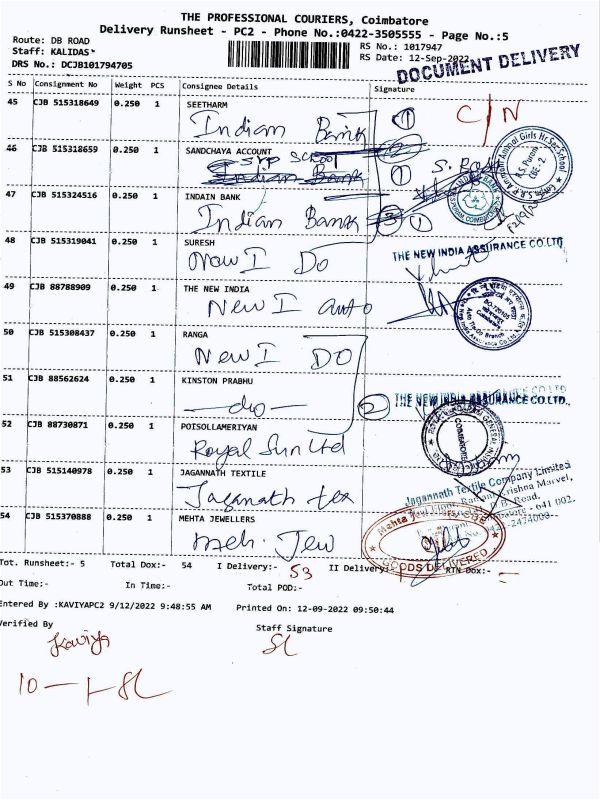 THE PROFESSIONAL COURIERS, Coimbatore
Delivery Runsheet - PC2 - Phone No.:0422-3505555 - Page No.:5
Route: DB ROAD
RS No.: 1017947
Staff: KALIDAS*
RS Date: 12-Sep-2022
DRS No.: DCJB101794705
DOCUMENT DELIVERY
S No Consignment No Weight PCS Consignee Details Signature
45 CJB 515318649 0.250 1 SEETHARM
Indian Bank ① C/N
46 CJB 515318659 0.250 1 SANDCHAYA ACCOUNT
SVP School
Indian Bank ①
47 CJB 515324516 0.250 1 INDAIN BANK
Indian Bank ③ ①
48 CJB 515319041 0.250 1 SURESH
New I Do
THE NEW INDIA ASSURANCE CO.LTD
49 CJB 88788909 0.250 1 THE NEW INDIA
New I auto
50 CJB 515308437 0.250 1 RANGA
New I DO
51 CJB 88562624 0.250 1 KINSTON PRABHU
—do— ②
THE NEW INDIA ASSURANCE CO.LTD.,
52 CJB 88730871 0.250 1 POISOLLAMERIYAN
Royal Sun Ltd
COIMBATORE
53 CJB 515140978 0.250 1 JAGANNATH TEXTILE
Jaganath tex
Jagannath Textile Company Limited
Krishna Marvel,
Road,
- 641 002.
54 CJB 515370888 0.250 1 MEHTA JEWELLERS
Meh. Jew
GOODS DELIVERED
Tot. Runsheet:- 5 Total Dox:- 54 I Delivery:- 53 II Delivery:- 1 RTN Dox:- -
Out Time:- In Time:- Total POD:-
Entered By :KAVIYAPC2 9/12/2022 9:48:55 AM Printed On: 12-09-2022 09:50:44
Verified By Staff Signature
Kaviya